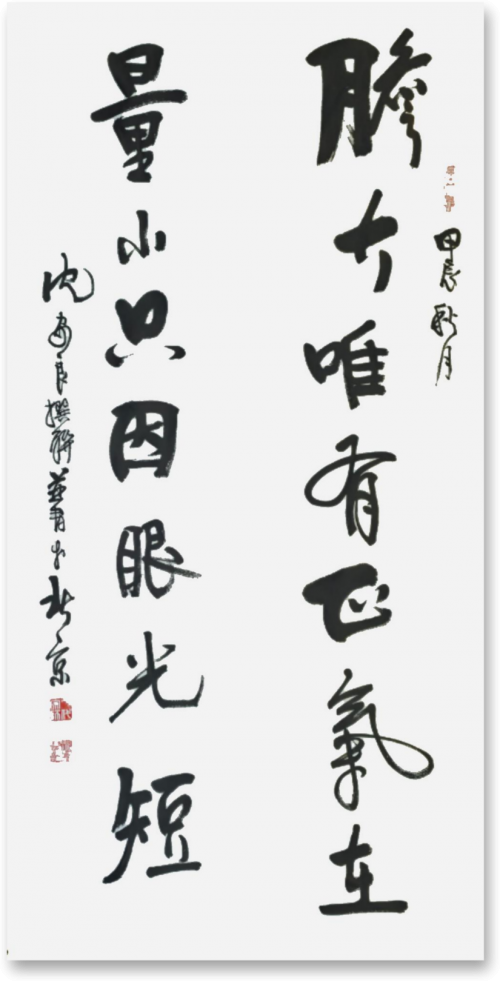 膽大唯有正氣在
甲辰秋月
量小只因眼光短
沈良撰聯并書于北京